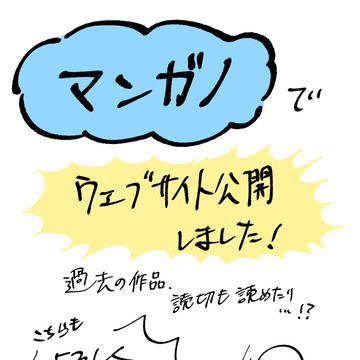 マンガノで
ウェブサイト公開
しました！
過去の作品、
読切も読めたり
…!?
こちらも